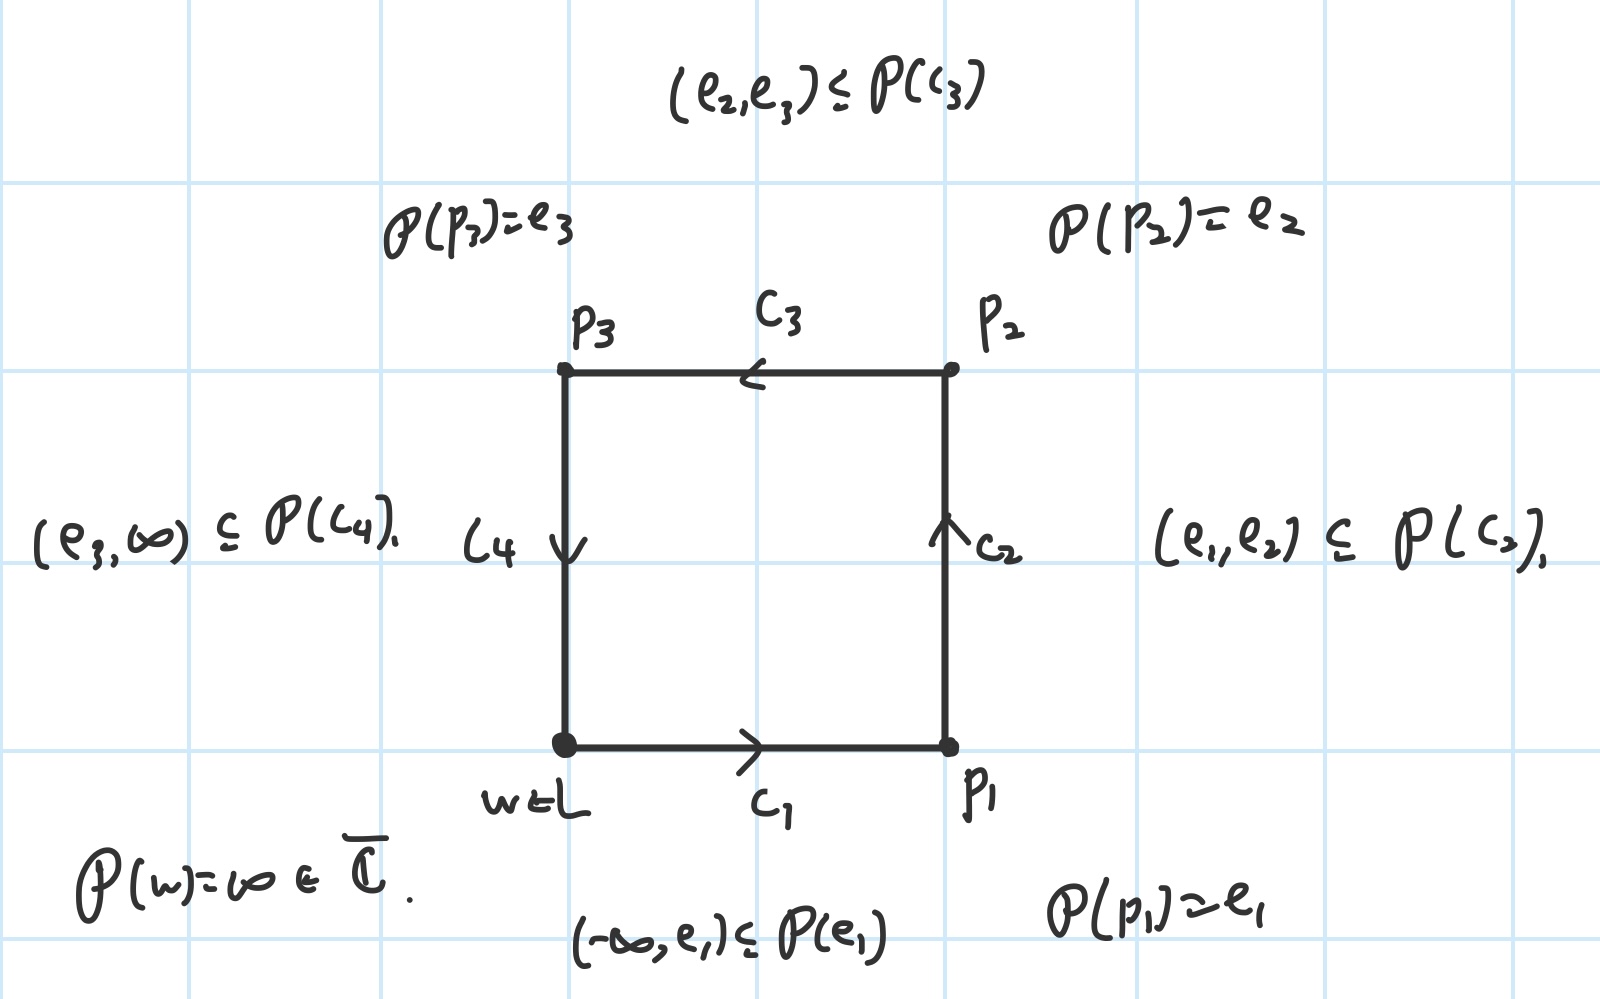 (e₂,e₃) ⊆ ℘(C₃)
℘(p₃)=e₃
℘(p₂)=e₂
p₃
C₃
p₂
(e₃,∞) ⊆ ℘(C₄).
C₄
C₂
(e₁,e₂) ⊆ ℘(C₂).
w∈L
C₁
p₁
℘(w)=∞ ∈ ℂ̅.
(-∞,e₁) ⊆ ℘(e₁)
℘(p₁)=e₁